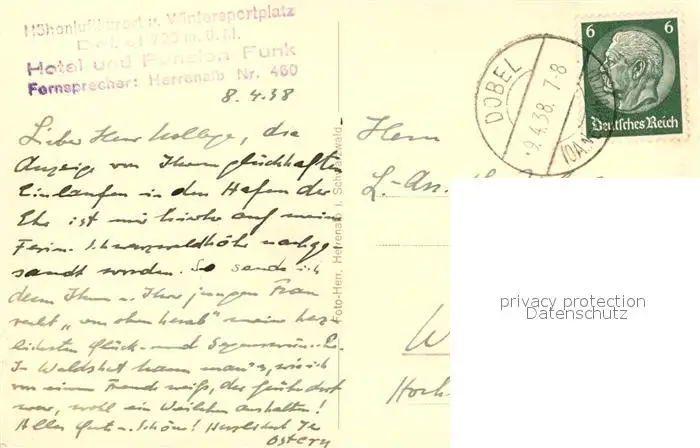 Höhenluftkurort u. Wintersportplatz
Dobel 720 m. ü. M.
Hotel und Pension Funk
Fernsprecher: Herrenalb Nr. 460
8.4.38
Lieber Herr Kollege, die
Anzeige von Ihrem glückhaften
Einlaufen in den Hafen der
Ehe ist mir hierher auf meine
Ferien Schwarzwaldhöhe nachge
sandt worden. So sende ich
denn Ihnen u. Ihrer jungen Frau
recht "von oben herab" meine herz-
lichsten Glück- und Segenswünsche.
In Waldshut kann man's, wie ich
von einem Freund weiß, der früher dort
war, wohl ein Weilchen aushalten!
Alles Gute u. Schöne! Herzlichst Ihr
Ostern
Foto-Herr, Herrenalb i. Schwarzwald
DOBEL
9.4.38. 7-8
6 6
Deutsches Reich
Herrn
L.-Ass.
W
Hoch
privacy protection
Datenschutz